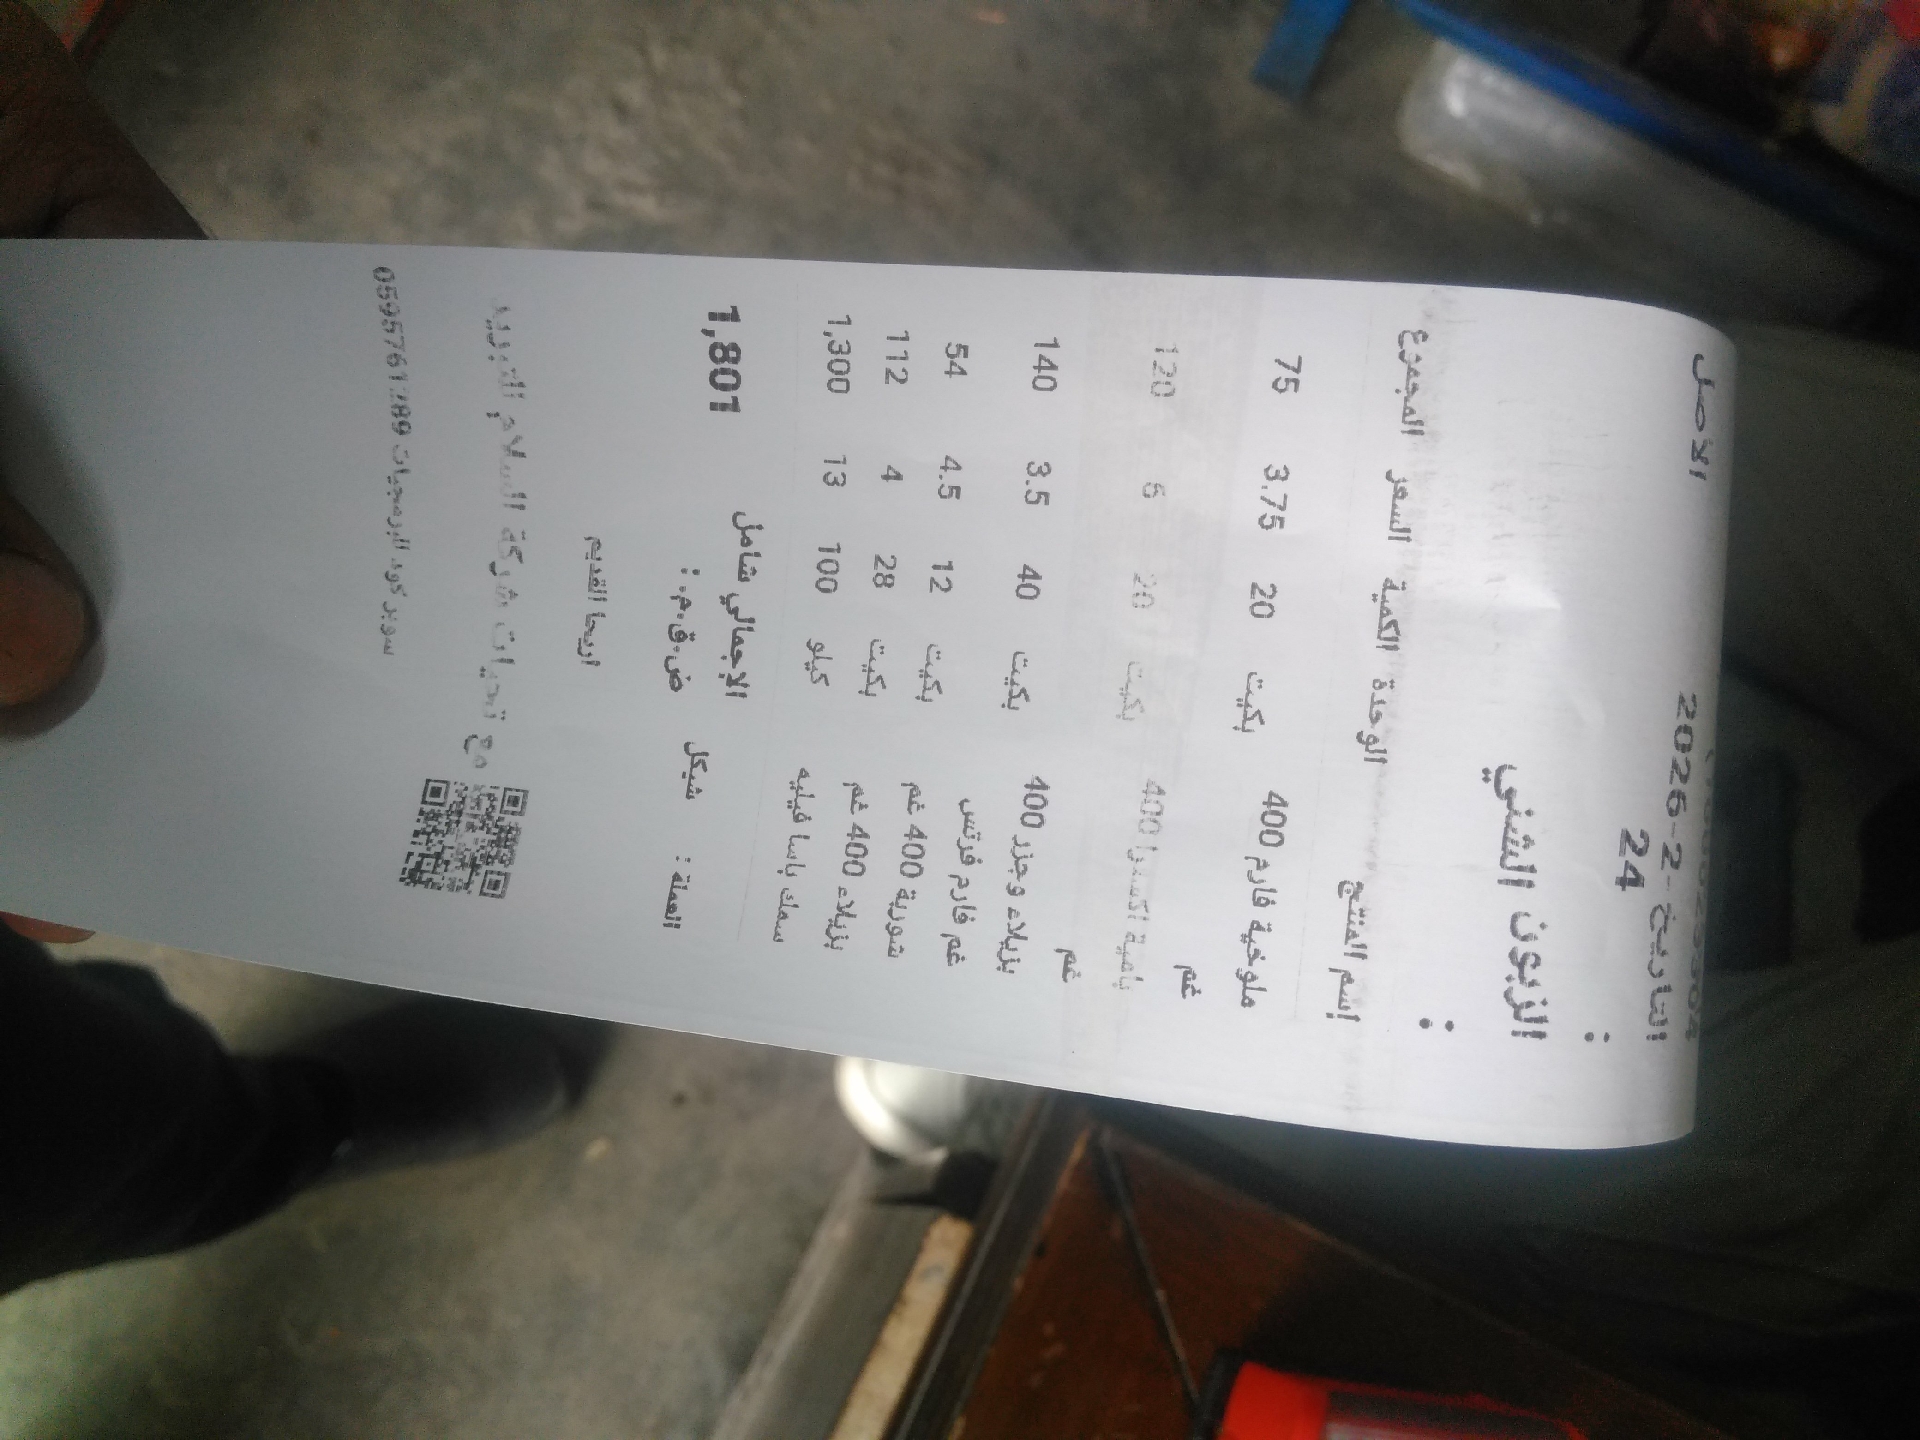 الأصل
التاريخ 2026-2-24 :
الزبون الشني :
إسم المنتج الوحدة الكمية السعر المجموع
ملوخية فارم 400 غم بكيت 20 3.75 75
بامية اكسترا 400 غم بكيت 20 6 120
بزيلاء وجزر 400 غم بكيت 40 3.5 140
غم فارم فرتس بكيت 12 4.5 54
شوربة 400 غم بكيت 28 4 112
بزيلاء 400 غم
سمك باسا فيليه كيلو 100 13 1,300
الإجمالي شامل ض.ق.م. : 1,801
العملة : شيكل
اريحا القديم
مع تحيات شركة السلام للتبريد
سوبر كود للبرمجيات